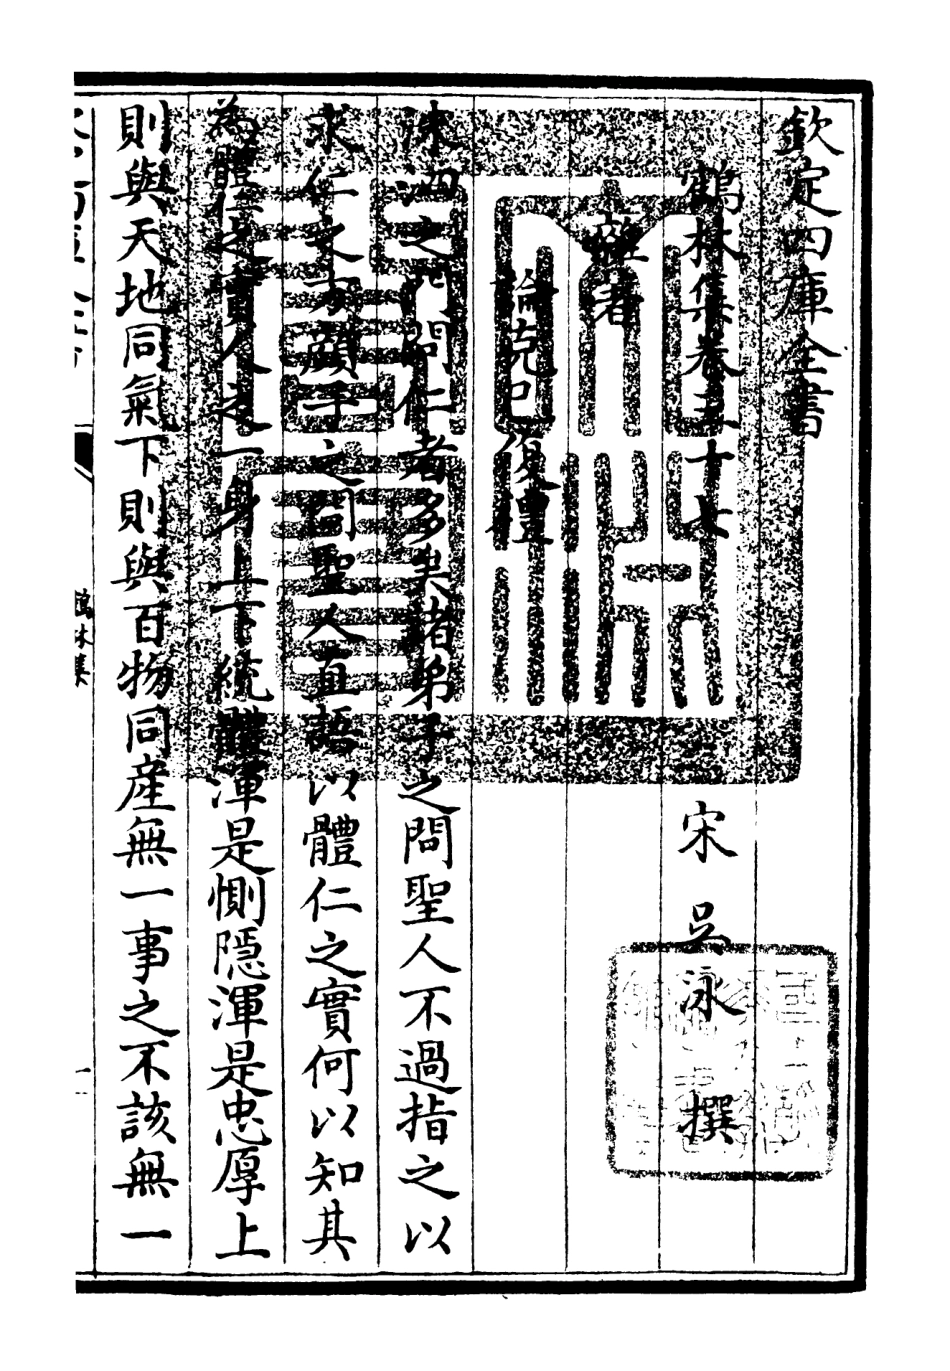 欽定四庫全書
鶴林集卷三十七 宋 吳泳 撰
雜著
論克己復禮
洙泗之門問仁者多矣諸弟子之問聖人不過指之以
求仁之方顔子之問聖人直語以體仁之實何以知其
為體仁之實人之一身上下統體渾是惻隠渾是忠厚上
則與天地同氣下則與百物同産無一事之不該無一
鶴林集